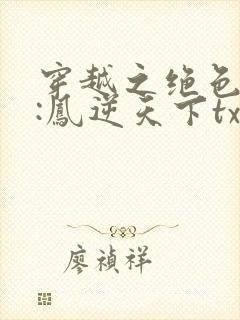 穿越之绝色
:鳳逆天下tx
廖禎祥